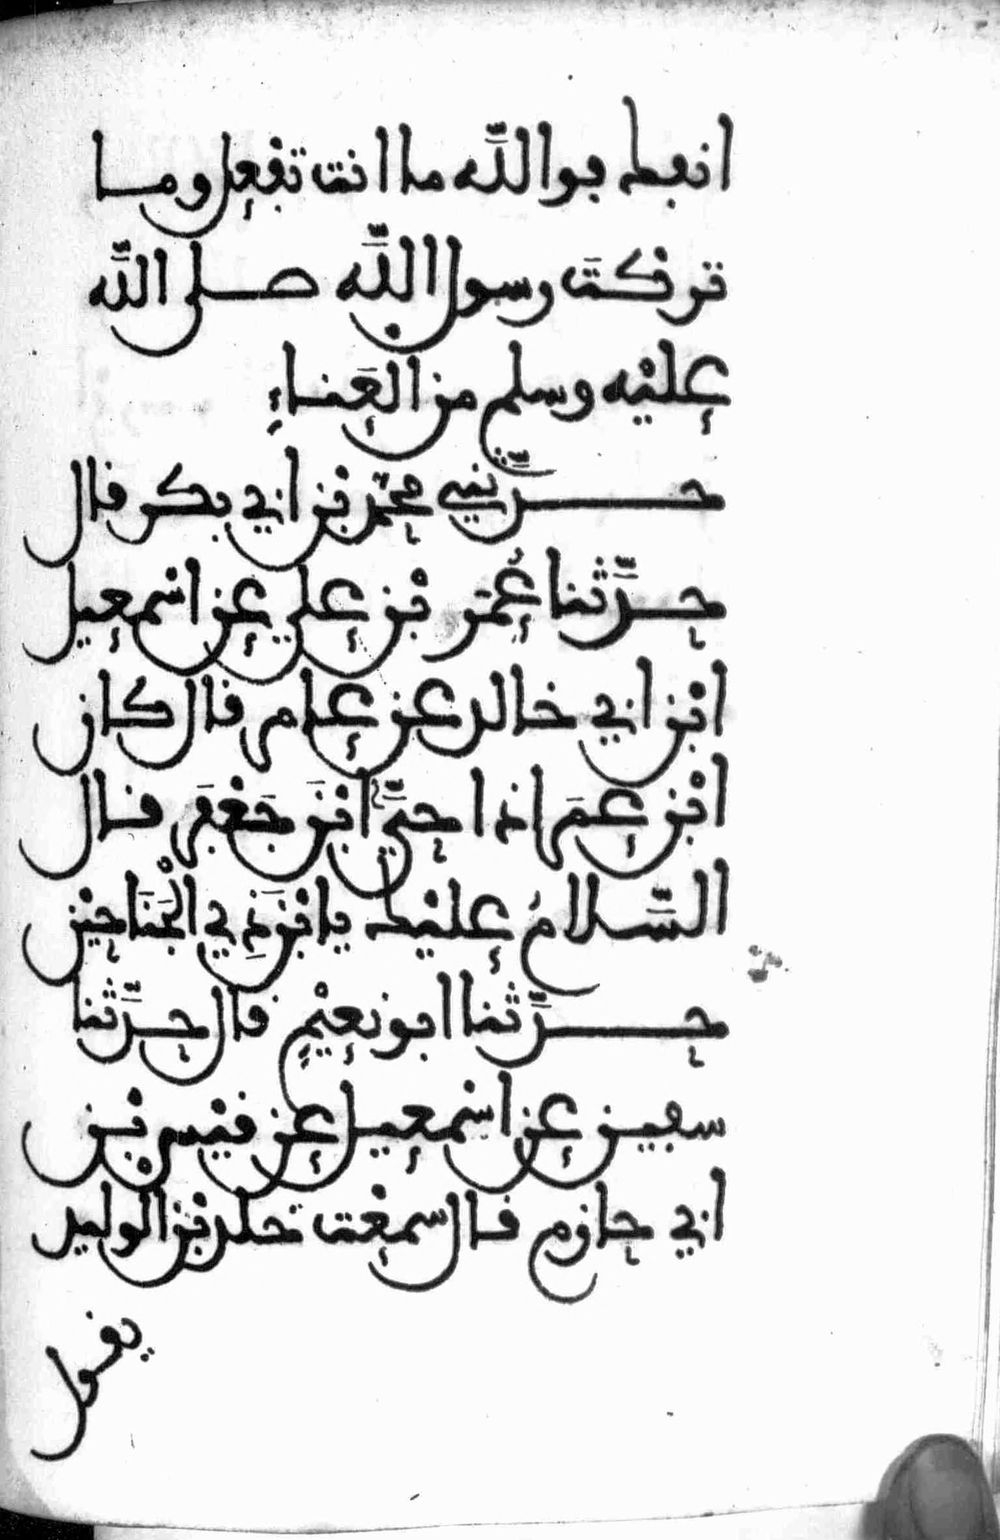 انفك فوالله ما انت تفعل وما
تركت رسول الله صلى الله
عليه وسلم من العناء
حدثني محمد بن ابي بكر قال
حدثنا عمر بن علي عن اسمعيل
ابن ابي خالد عن عامر قال كان
ابن عمر اذا حيى ابن جعفر قال
السلام عليك يابن ذي الجناحين
حدثنا ابو نعيم قال حدثنا
سفين عن اسمعيل عن قيس بن
ابي حازم قال سمعت خلد بن الوليد
يقول